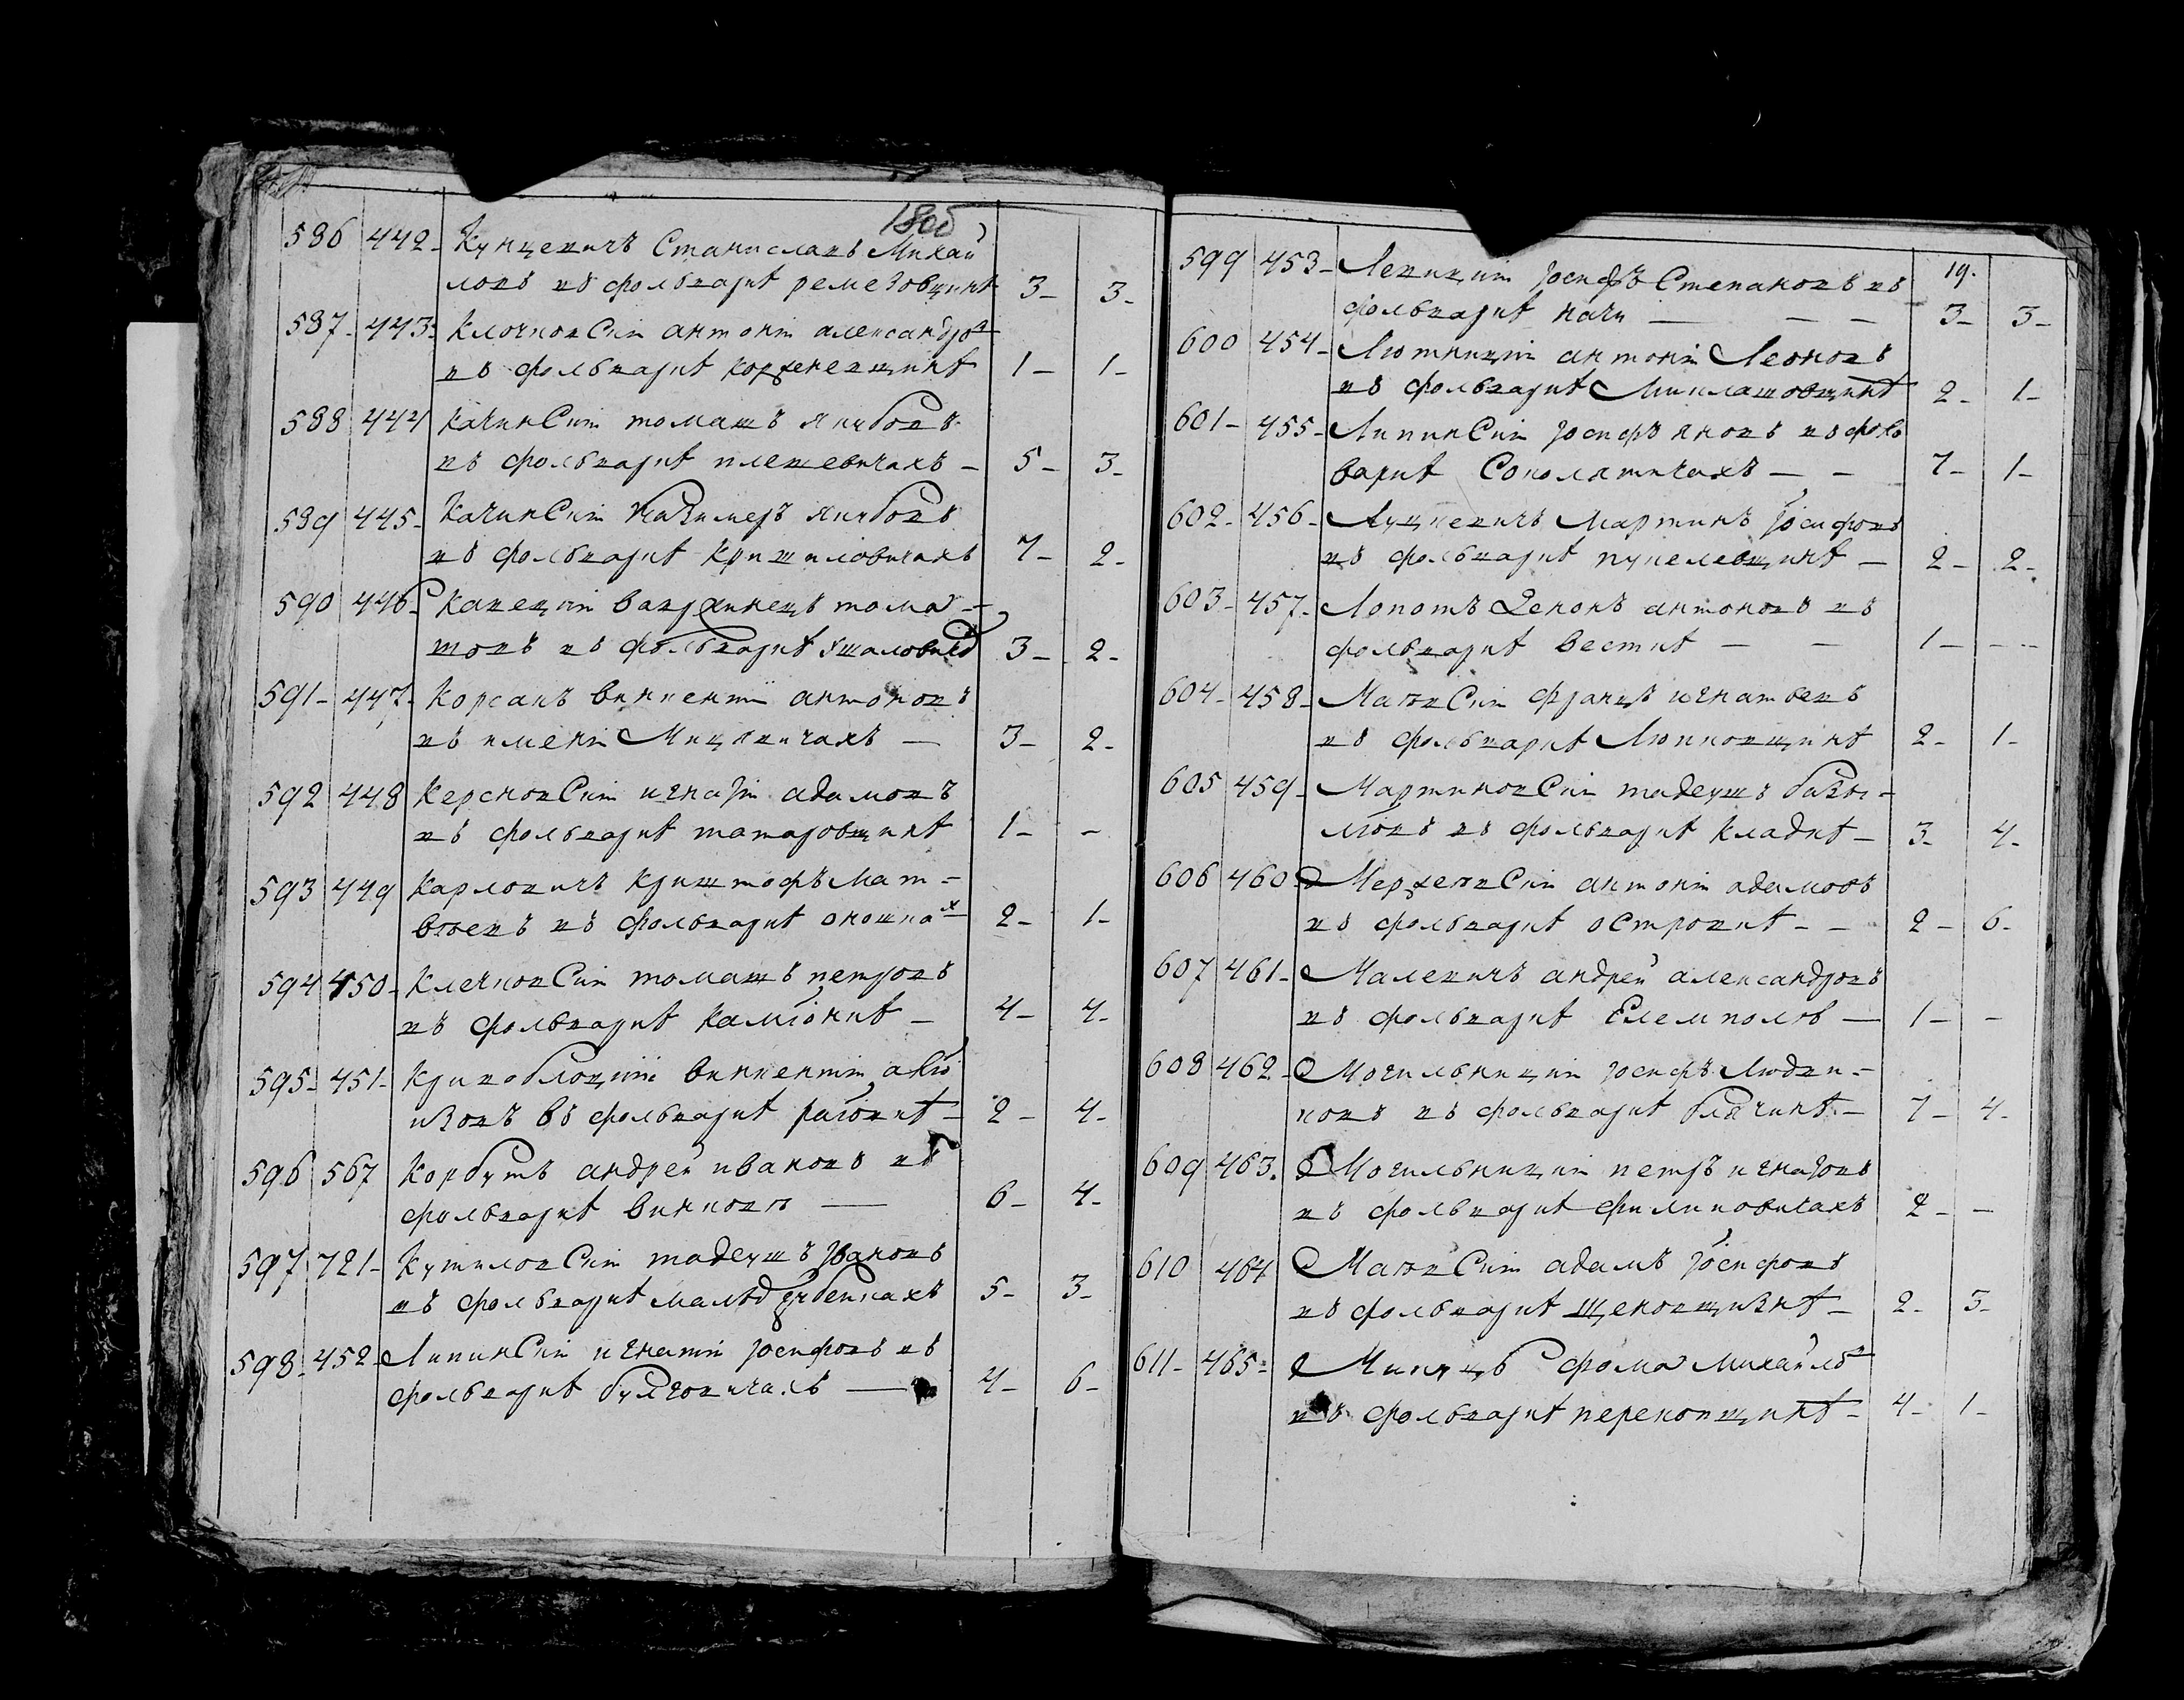 1805
586 442- Кунцевичъ Станиславъ Михай
ловъ въ фольваркѣ ремезовщинѣ 3- 3-
587- 443- Клочковскій антоній александро
въ фольваркѣ корженевщинѣ 1- 1-
588 444 Качинскій томашъ якубовъ
въ фольваркѣ плешевичахъ - 5- 3-
589 445- Качинскій Казимеръ якубовъ
въ фольваркѣ кришиловичахъ 7- 2-
590 446- Канецкій вавржинецъ тома-
шовъ въ фольваркѣ 3- 2-
591- 447- Корсакъ викентій антоновъ
въ имени Мицкичахъ — 3- 2-
592 448 Керсновскій игнатій адамовъ
въ фольваркѣ татаровщинѣ 1- -
593 449 Карловичъ криштофъ Мат-
вѣевъ въ фольваркѣ оношкахъ 2- 1-
594 450- Клечковскій томашъ петровъ
въ фольваркѣ каміонкѣ - 4- 4-
595- 451- Кривоблоцкій викентій алои
изовъ въ фольваркѣ раговкѣ - 2- 4-
596 567 Корбутъ андрей ивановъ въ
фольваркѣ — 6- 4-
597 721- Кутиловскій тадеушъ ивановъ
въ фольваркѣ 5- 3-
598- 452- Липинскій игнатій іосифовъ въ
фольваркѣ булговичахъ — 4- 6-
19.
599 453- Левицкій іосифъ Степановъ въ
фольваркѣ начи — — — 3- 3-
600 454- Лютницкій антоній Леоновъ
въ фольваркѣ Миклашовщинѣ 2- 1-
601- 455- Липинскій іосифъ яновъ въ фоль
варкѣ Соколятичахъ — - 7- 1-
602- 456- Луцкевичъ Мартинъ іосифовъ
въ фольваркѣ пупелевщинѣ - 2- 2-
603- 457- Лопотъ Зенонъ антоновъ въ
фольваркѣ весткѣ — — 1- - -
604- 458- Маевскій францъ игнатьевъ
въ фольваркѣ Люпковщинѣ 2- 1-
605 459- Мартиновскій тадеушъ базы-
лювъ въ фольваркѣ кладкѣ - 3- 4-
606 460 Мержеевскій антоній адамовъ
въ фольваркѣ островкѣ - - 2- 6-
607 461- Малевичъ андрей александровъ
въ фольваркѣ Елемполѣ — 1- -
608 462- Могильницкій іосифъ Людви-
ковъ въ фольваркѣ блячинѣ - 7- 4-
609 463. Могильницкій петръ игнатовъ
въ фольваркѣ филиповичахъ 2- -
610 464 Маевскій адамъ іосифовъ
въ фольваркѣ - 2- 3-
611- 465- фома Михайловъ
въ фольваркѣ перековщинѣ - 4- 1-